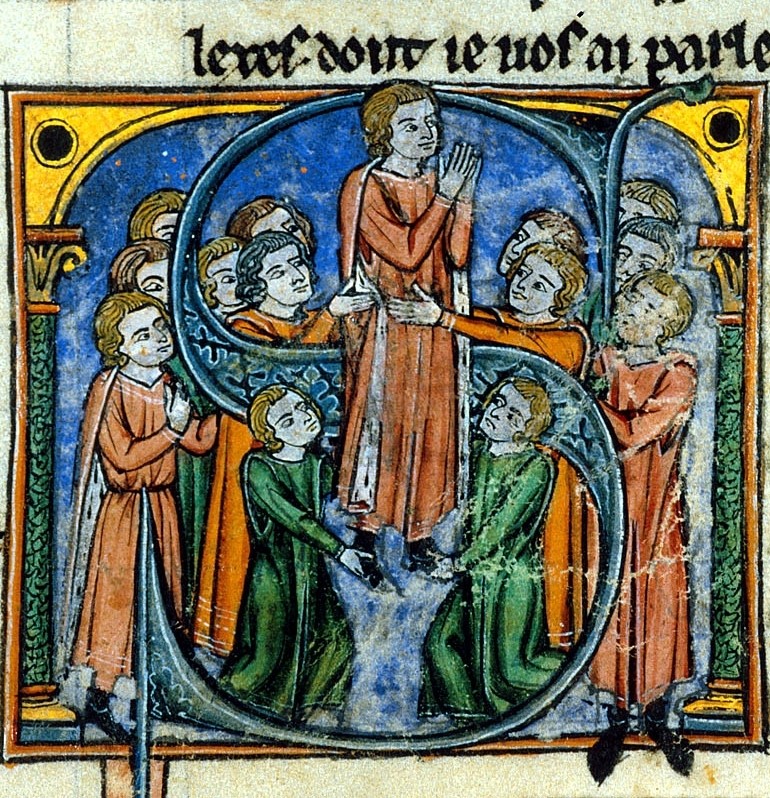 lexes dont ie uos ai parle